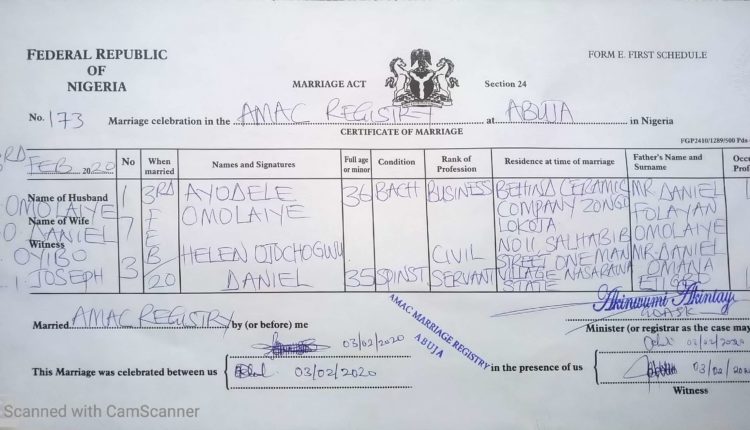 FEDERAL REPUBLIC
OF
NIGERIA
FORM E. FIRST SCHEDULE
MARRIAGE ACT
Section 24
No. 173 Marriage celebration in the AMAC REGISTRY at ABUJA in Nigeria
CERTIFICATE OF MARRIAGE
FGP2410/1289/500 Pds
3RD FEB 2020
No
When married
Names and Signatures
Full age or minor
Condition
Rank of Profession
Residence at time of marriage
Father's Name and Surname
Name of Husband
OMOLAIYE
Name of Wife
DANIEL
Witness
OYIBO
JOSEPH
1
7
3
3RD
F
E
B
20
AYODELE
OMOLAIYE
HELEN
DANIEL
36
35
BACH
SPINST
BUSINESS
CIVIL
SERVANT
BEHIND CERAMIC
COMPANY ZONGO
LOKOJA
NO 11 SALHABIB
STREET ONE MAN
VILLAGE NASARAWA
STATE
MR. DANIEL
FOLAYAN
OMOLAIYE
MR. DANIEL
OMANA
Married AMAC REGISTRY by (or before) me
03/02/2020
AMAC MARRIAGE REGISTRY
ABUJA
Akinwumi Akintayo
Minister (or registrar as the case may
03/02/2020
This Marriage was celebrated between us
03/02/2020
in the presence of us
03/02/20
Witness
Scanned with CamScanner